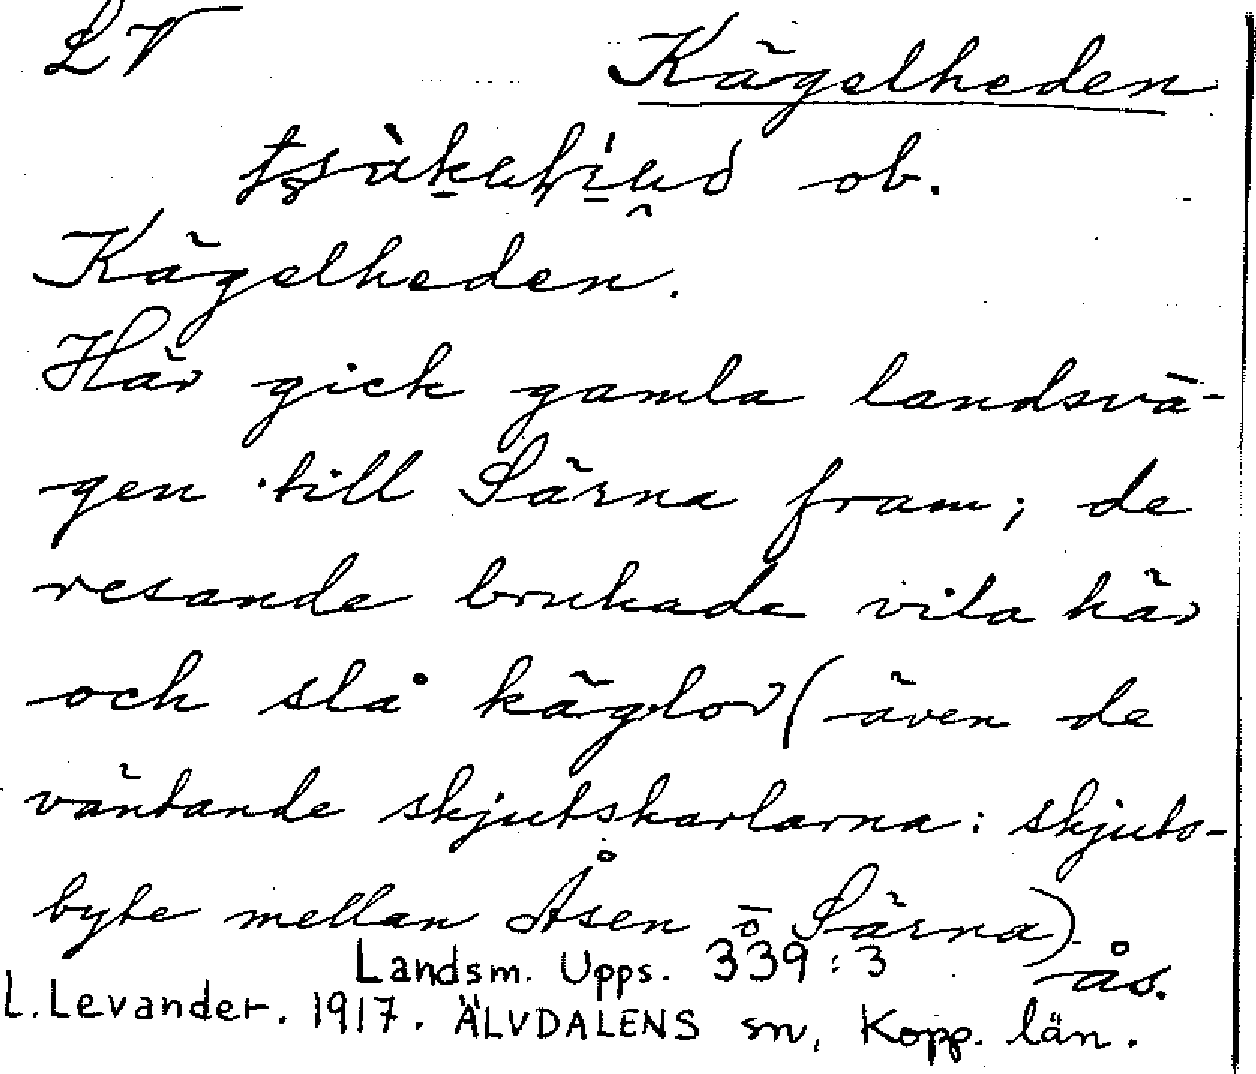 LV
Kägelheden
ob.
Kägelheden.
Här gick gamla landsvä-
gen till Särna fram; de
resande brukade vila här
och slå käglor (även de
väntande skjutskarlarna: skjuts-
byte mellan Åsen o Särna).
Landsm. Upps. 339:3 ås.
L. Levander. 1917. ÄLVDALENS sn, Kopp. län.